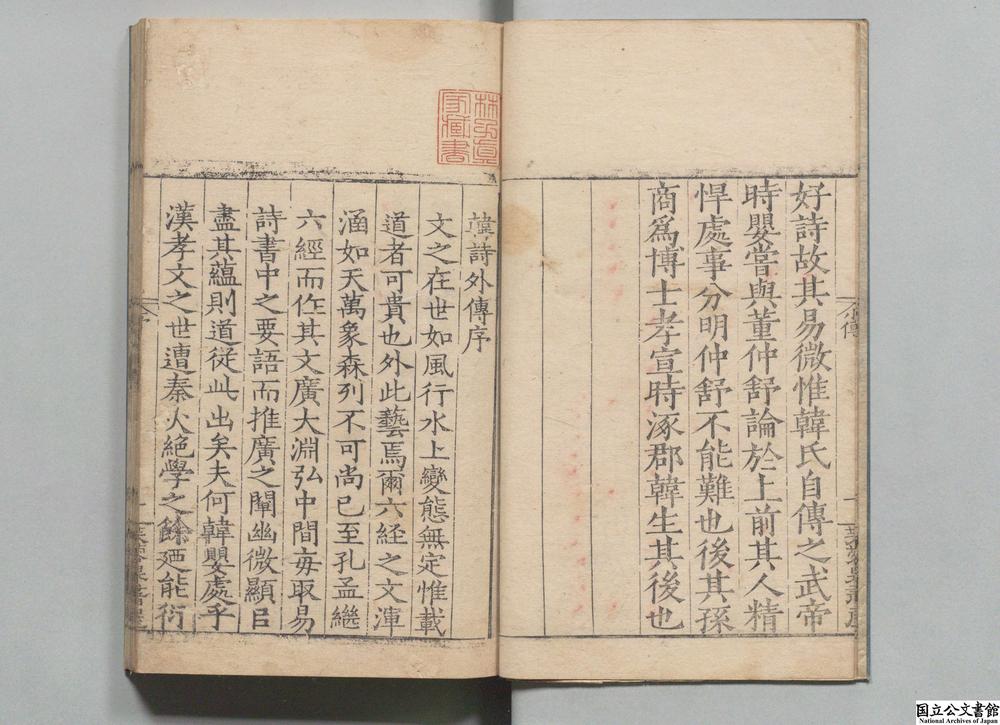 好詩故其易微惟韓氏自傳之武帝
時嬰嘗與董仲舒論於上前其人精
悍處事分明仲舒不能難也後其孫
商爲博士孝宣時涿郡韓生其後也
韓詩外傳序
文之在世如風行水上變態無定惟載
道者可貴也外此藝焉爾六経之文渾
涵如天萬象森列不可尚已至孔孟繼
六經而作其文廣大淵弘中間毎取易
詩書中之要語而推廣之闡幽微顯巨
盡其蘊則道從此出矣夫何韓嬰處乎
漢孝文之世遭秦火絶學之餘廼能衍
林氏藏書
国立公文書館
National Archives of Japan